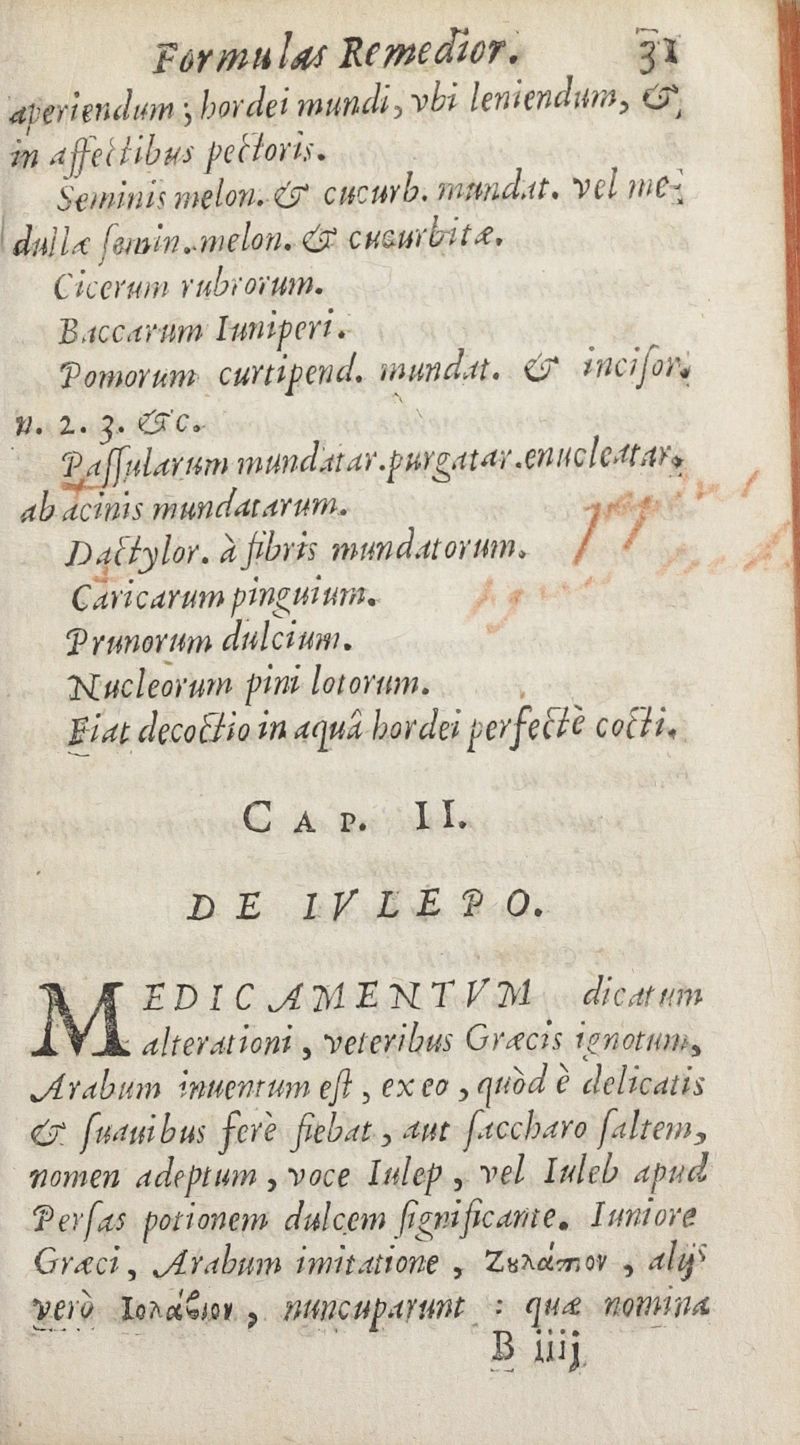 Formulas Remedior. 31
aperiendum; hordei mundi, vbi leniendum, &
in affectibus pectoris.
Seminis melon. & cucurb. mundat. vel me-
dullæ ſemin. melon. & cucurbitæ.
Cicerum rubrorum.
Baccarum Iuniperi.
Pomorum curtipend. mundat. & inciſor.
n. 2. 3. &c.
Paſſularum mundatar. purgatar. enucleatar.
ab acinis mundatarum.
Dactylor. à fibris mundatorum.
Caricarum pinguium.
Prunorum dulcium.
Nucleorum pini lotorum.
Fiat decoctio in aquâ hordei perfectè cocti.
CAP. II.
DE IVLEPO.
MEDICAMENTVM dicatum
alterationi, veteribus Græcis ignotum,
Arabum inuentum eſt, ex eo, quòd è delicatis
& ſuauibus ferè fiebat, aut ſaccharo ſaltem,
nomen adeptum, voce Iulep, vel Iuleb apud
Perſas potionem dulcem ſignificante. Iuniore
Græci, Arabum imitatione, Ζȣλάπιον, alijs
verò Ιολάϐιον, nuncuparunt : quæ nomina
B iiij